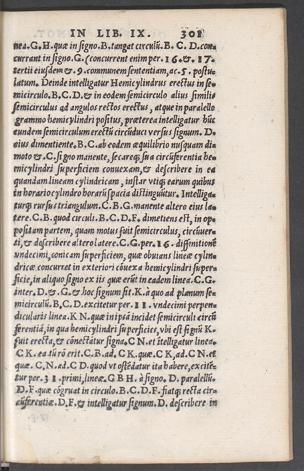 IN LIB. IX. 301
nea.G.H. quæ in signo.B. tangat circulũ.B. C. D. con-
currant in signo.G. (concurrent enim per.16.&.17.
tertii eiusdem &.9. communem sententiam, ac.5. postu-
latum. Deinde intelligatur Hemicylindrus erectus in se-
micirculo.B.C.D. & in eodem semicirculo alius similis
semicirculus ad angulos rectos erectus, atque in parallelo
grammo hemicylindri positus, præterea intelligatur hũc
eundem semicirculum erectũ circũduci versus signum.D.
eius dimentiente.B.C. ab eodem æquilibrio nusquam di-
moto &.C. signo manente, secareq; sua circũferentia he-
micylindri superficiem conuexam, & describere in ea
quandam lineam cylindricam, instar vtiq; earum quibus
in horario cylindro horarũ spacia distinguũtur. Intelliga-
turq; rursus triangulum.C.B.G. manente altero eius la-
tere.C.B. quod circuli.B.C.D.F. dimetiens est, in op-
positam partem, quam motus fuit semicirculus, circũuer-
ti, & describere altero latere.C.G. per.16. diffinitionẽ
vndecimi, conicam superficiem, quæ obuians lineæ cylin-
dricæ concurret in exteriori cõuexa hemicylindri super-
ficie, in aliquo signo ex iis quæ erũt in eadem linea.C.G.
inter.D. &.G. & hoc signum sit.K. à quo ad planum se-
micirculi.B.C.D. excitetur per.11. vndecimi perpen-
dicularis linea.K N. quæ in ipsã incidet semicirculi circũ
ferentiã, in qua hemicylindri superficies, vbi est signũ K.
fuit erecta, & cõnectatur signa.C N. et ĩtelligatur linea.
C K. ea tũ rõ erit.C B. ad, C K. quæ.C K, ad.C N. et
quæ. C N, ad. C D. quod vt ostẽdatur ita habere, excite-
tur per.31. primi, lineæ.G B H. à signo. D. parallelũ.
D.F. quæ cõgruat in circulo.B.C.D.F. fiatq; recta cir-
cũferentiæ.D.F. & intelligatur signum. D. describere in